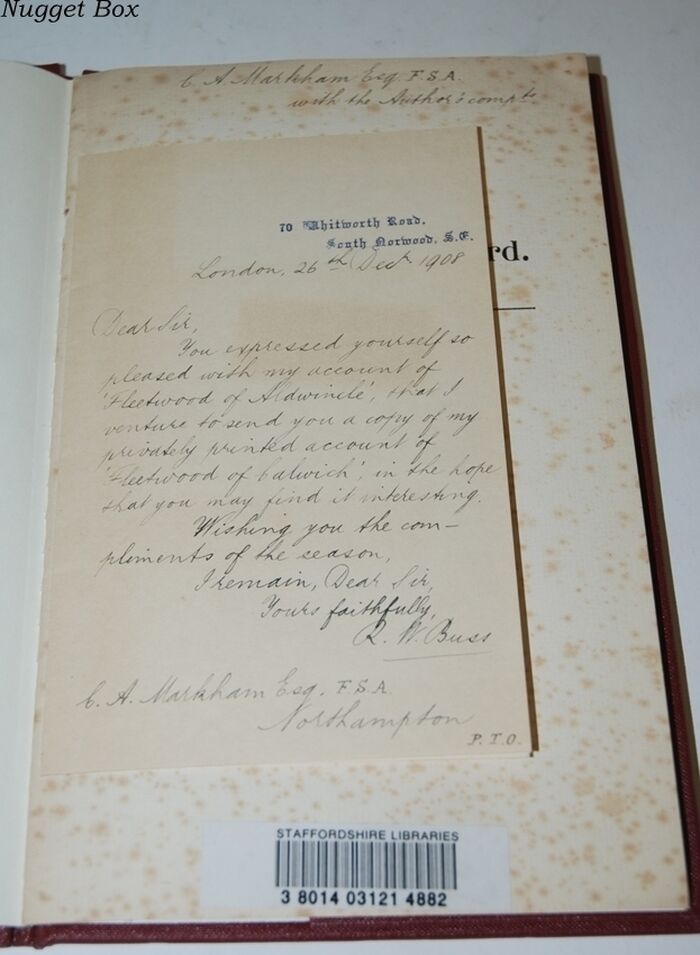 Nugget Box
C. A. Markham Esq. F.S.A.
with the Author's compts
70 Whitworth Road,
South Norwood, S.E.
rd.
London, 26th Decr 1908
Dear Sir,
You expressed yourself so
pleased with my account of
'Fleetwood of Aldwincle', that I
venture to send you a copy of my
privately printed account of
'Fleetwood of Calwich', in the hope
that you may find it interesting.
Wishing you the com-
pliments of the season,
I remain, Dear Sir,
Yours faithfully,
R. W. Buss
C. A. Markham Esq. F.S.A.
Northampton
P.T.O.
STAFFORDSHIRE LIBRARIES
3 8014 03121 4882